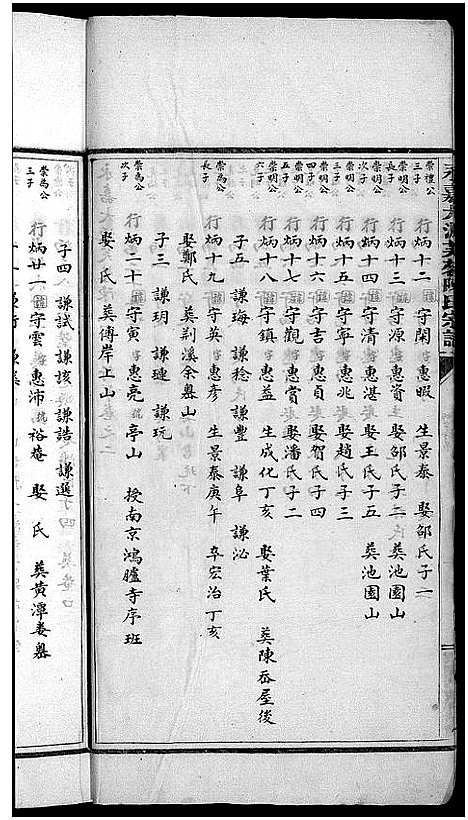 崇禮公三子 行炳十二 諱守閑 字惠暇 生景泰 娶邵氏子一
崇明公長子 行炳十三 諱守源 惠資 娶邵氏子二 葬池園山
崇明公次子 行炳十四 諱守清 惠湛 娶王氏子五 葬池園山
崇明公三子 行炳十五 諱守寧 惠兆 娶趙氏子三
崇明公四子 行炳十六 諱守吉 惠貞 娶賀氏子四
崇明公五子 行炳十七 諱守觀 惠賞 娶潘氏子二
崇明公六子 行炳十八 諱守鎮 惠益 生成化丁亥 娶葉氏 葬陳岙屋後
子五 謙海 謙稔 謙豐 謙阜 謙泌
崇為公長子 行炳十九 諱守英 字惠彥 生景泰庚午 卒宏治丁亥
娶鄭氏 葬荆溪余嶴山
子三 謙玥 謙璉 謙玩
崇為公次子 行炳二十 諱守寅 字惠亮 號亭山 授南京鴻臚寺序班
娶 氏 葬傅岸上山
子四 謙試 謙該 謙誥 謙選
崇為公三子 行炳廿一 諱守雲 字惠沛 號裕菴 娶 氏 葬黃潭婁嶴